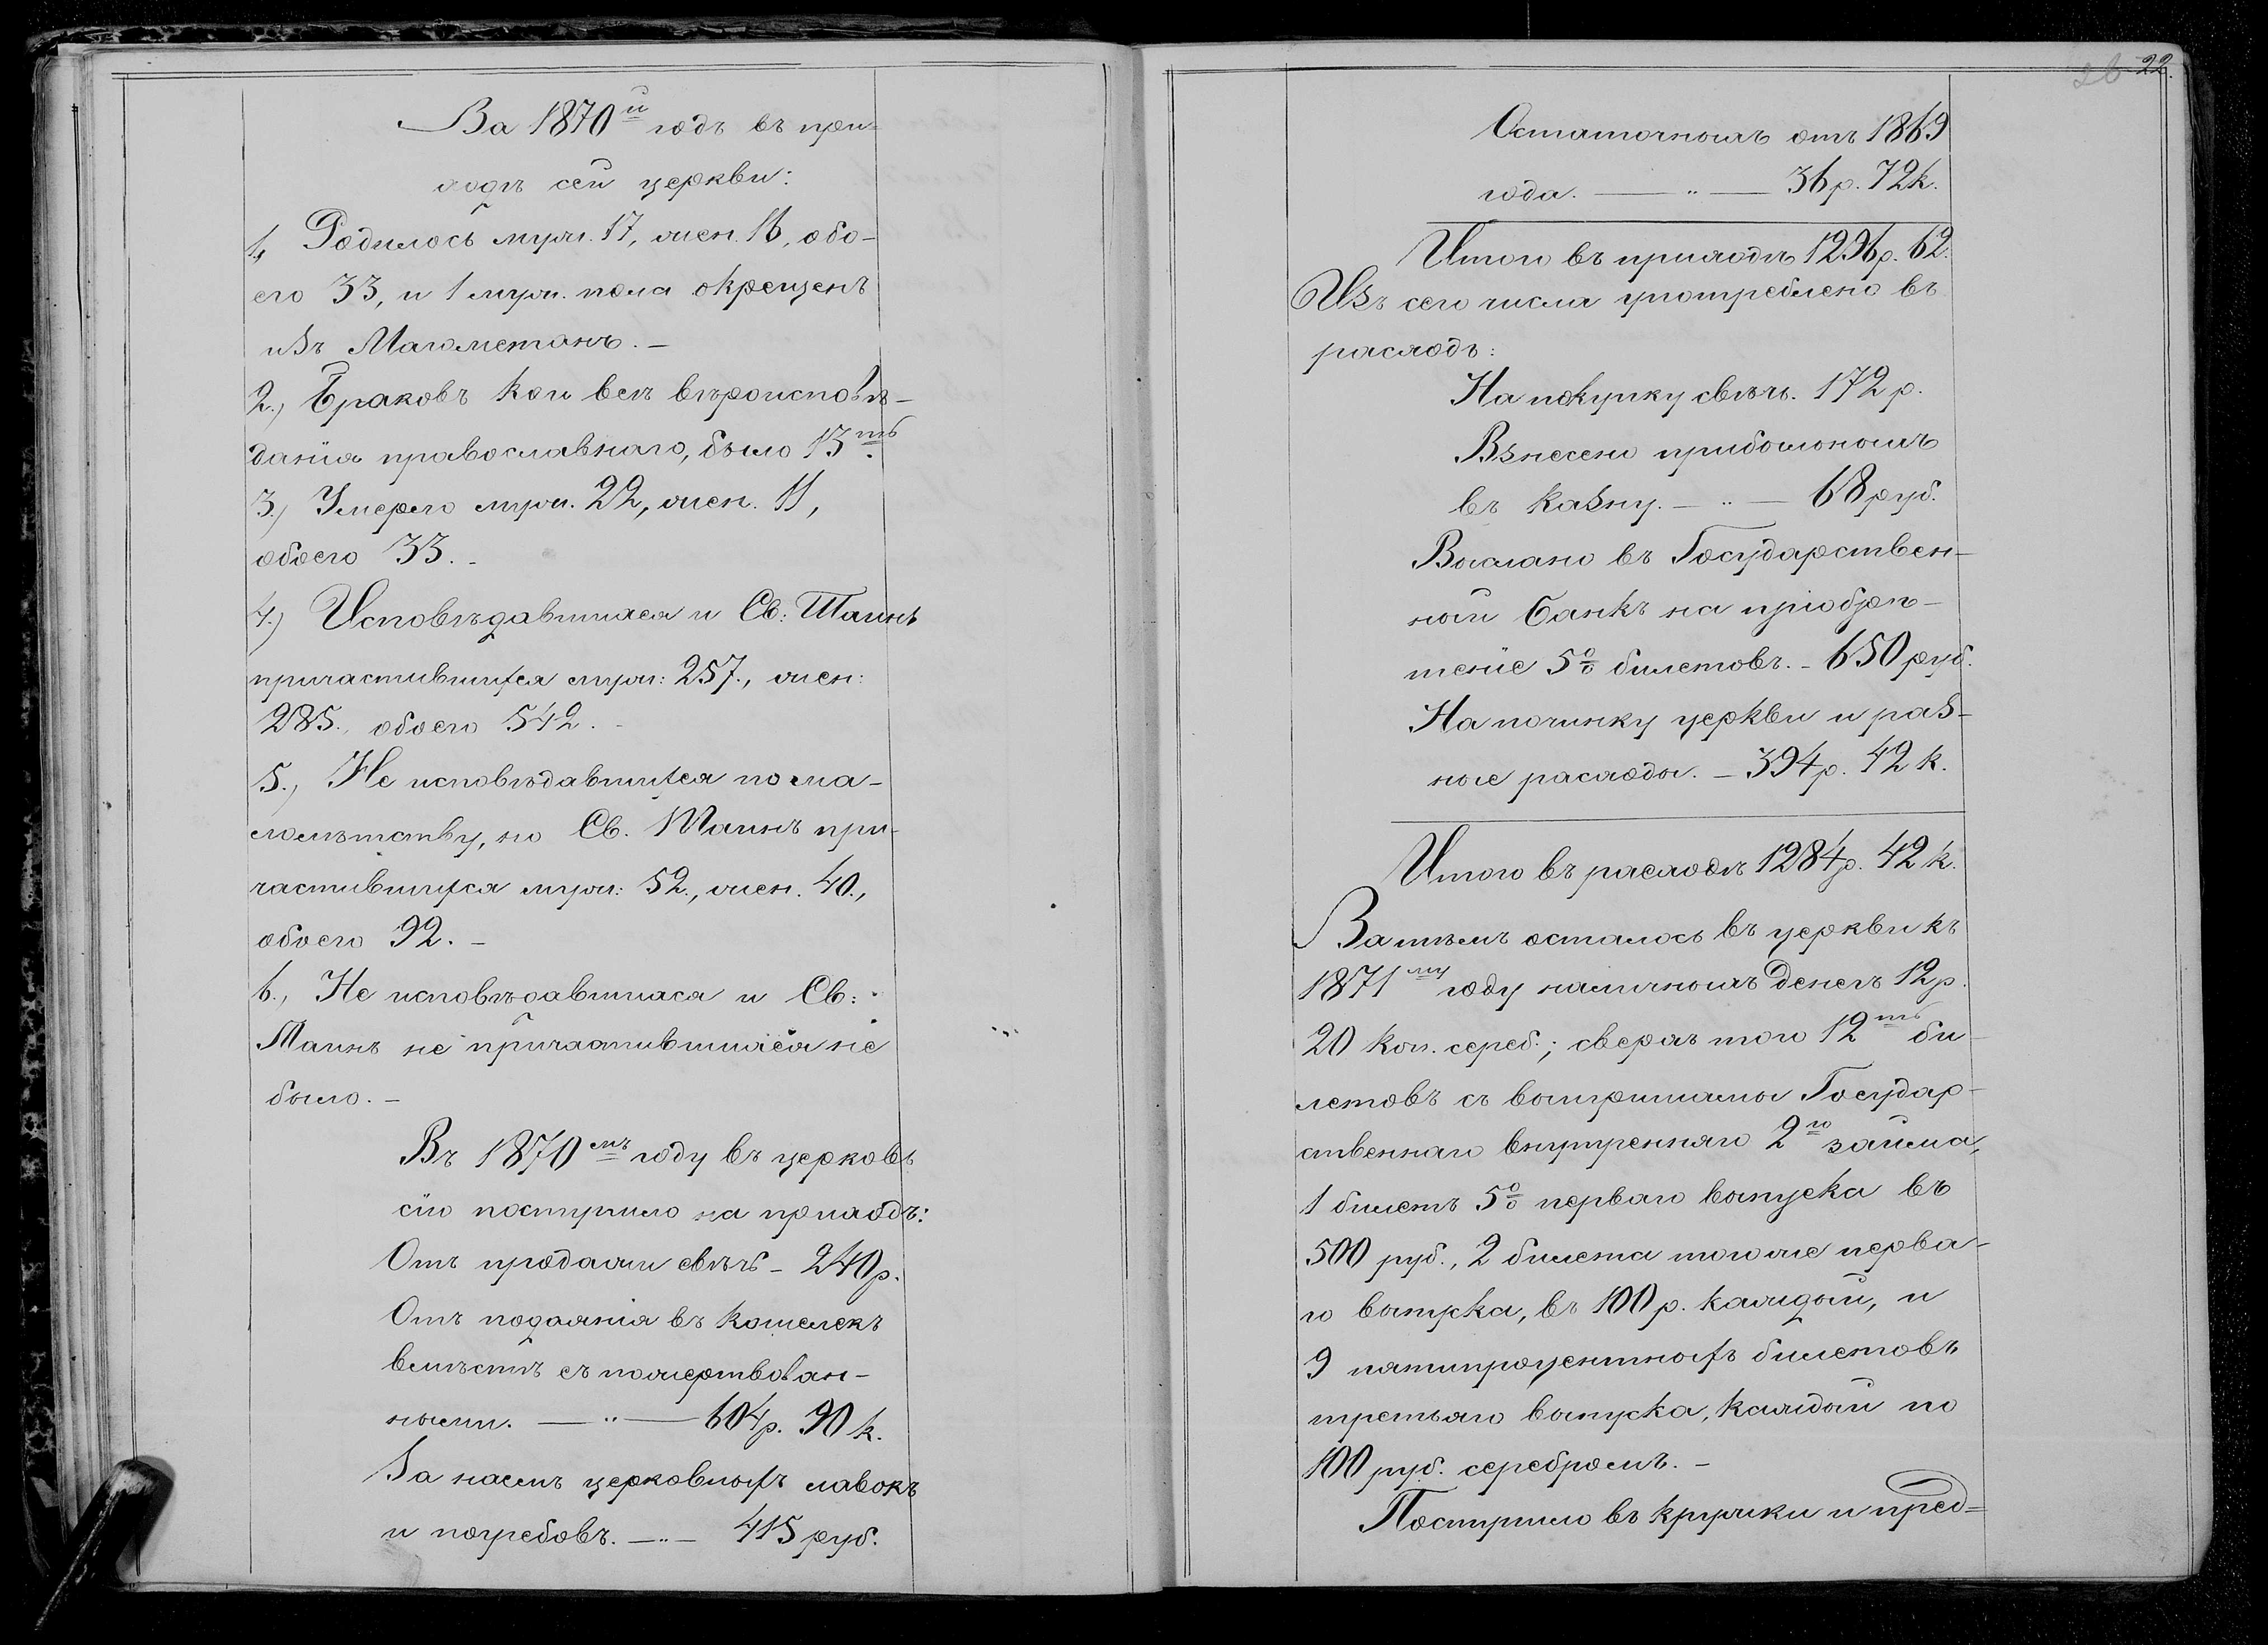 За 1870й годъ въ при-
ходѣ сей церкви:
1, Родилось муж. 17, жен. 16, обо-
его 33, и 1 муж. пола окрещенъ
изъ Магометанъ. –
2., Браковъ кои всѣ вѣроисповѣ-
данія православнаго, было 13ть.
3., Умерло муж. 22, жен. 11,
обоего 33. –
4.) Исповѣдавшихся и Св: Таинъ
причастившихся муж: 257., жен:
285., обоего 542. –
5., Не исповѣдавшихся по ма-
лолѣтству, но Св. Таинъ при-
частившихся муж: 52., жен. 40.,
обоего 92. –
6., Не исповѣдавшихся и Св:
Таинъ не причастившихся не
было. –
Въ 1870мъ году въ церковь
сію поступило на приходъ:
Отъ продажи свѣчь – 240 р.
Отъ подаянія въ кошелекъ
вмѣстѣ съ пожертвован-
ными. — " — 604 р. 90 к.
За наемъ церковныхъ лавокъ
и погребовъ. — " — 415 руб.
26 22.
Остаточныхъ отъ 1869
года. — " — 36 р. 72 к.
Итого въ приходѣ 1296 р. 62.
Изъ сего числа употреблено въ
расходъ:
На покупку свѣчь. 172 р.
Взнесено прибыльныхъ
въ казну. — " — 68 руб.
Выслано въ Государствен-
ный банкъ на пріобрѣ-
теніе 5% билетовъ. – 650 руб.
На починку церкви и раз-
ные расходы. – 394 р. 42 к.
Итого въ расходѣ 1284 р. 42 к.
Затѣмъ осталось въ церкви къ
1871му году наличныхъ денегъ 12 р.
20 коп. сереб.; сверхъ того 12ть би-
летовъ съ выигрышами Государ-
ственнаго внутренняго 2го займа,
1 билетъ 5% перваго выпуска въ
500 руб., 2 билета того же перва-
го выпуска, въ 100 р. каждый, и
9 пятипроцентныхъ билетовъ
третьяго выпуска, каждый по
100 руб. серебромъ. –
Поступило въ кружки и пред-